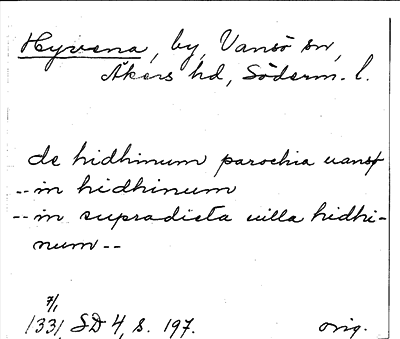 Hyvena, by, Vansö sn,
Åkers hd, Söderm. l.
de hidhinum parochia uansø
-- in hidhinum
-- in supradicta uilla hidhi-
num --
7/1
1331, SD 4, s. 197. orig.